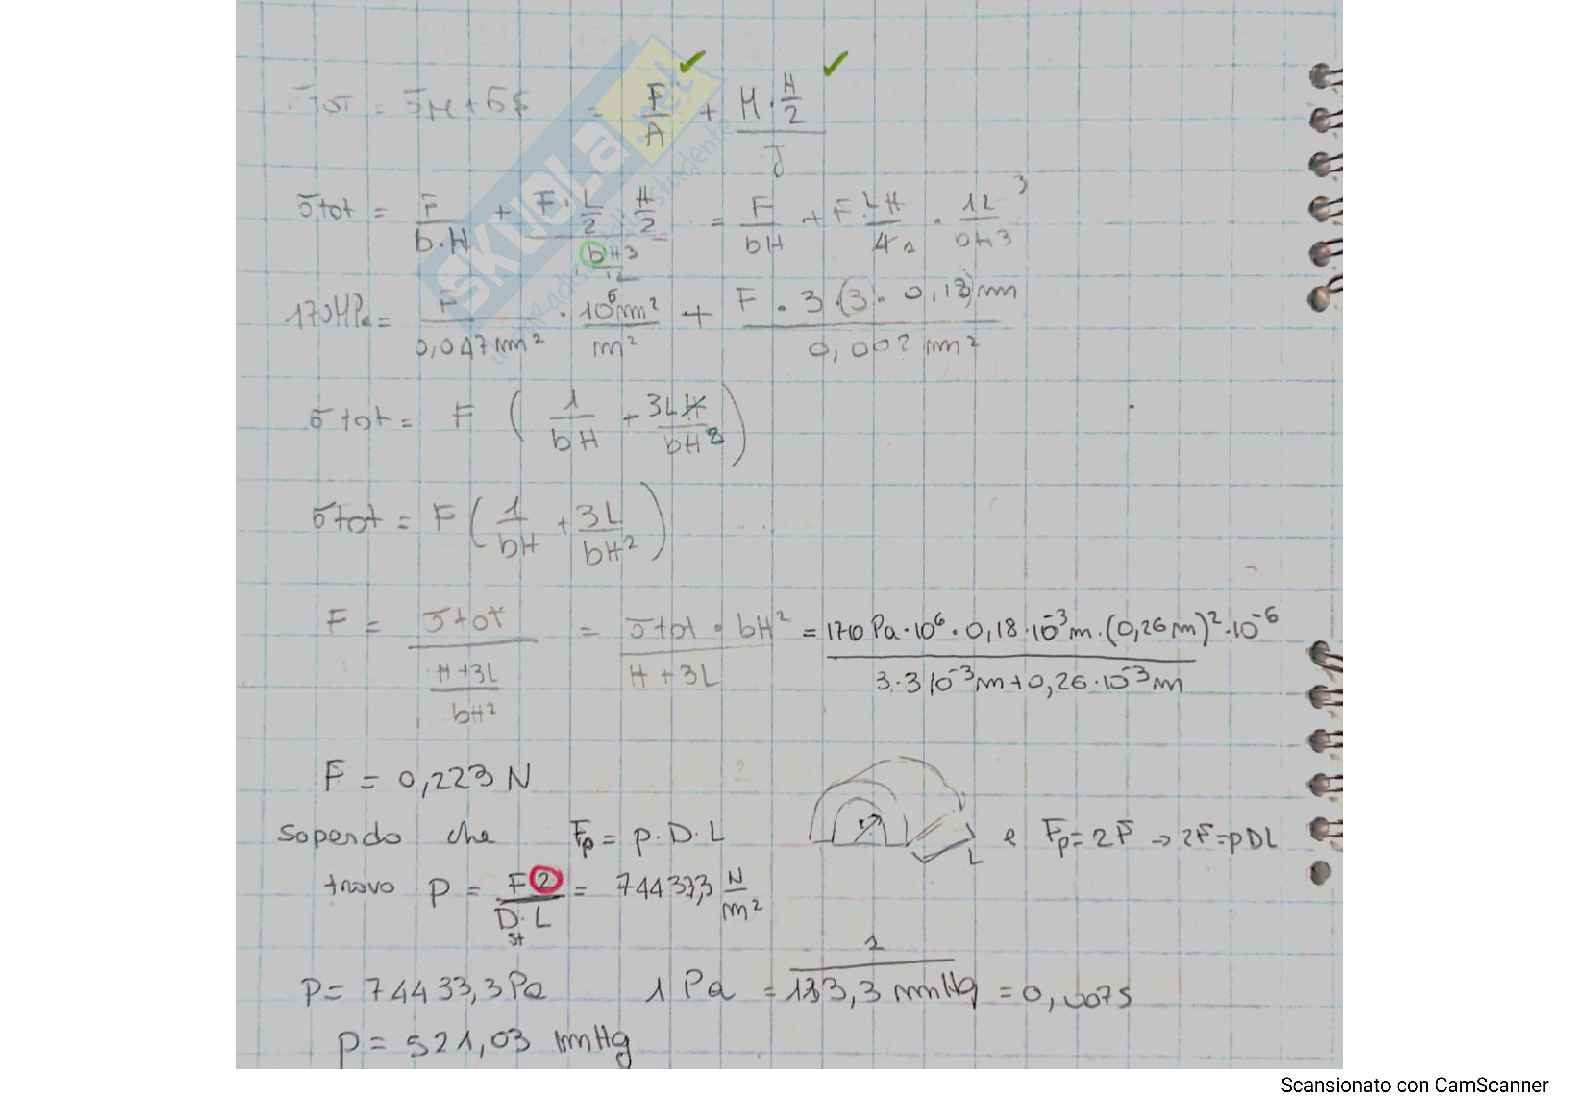 σtot = σN + σf = F/A + M · H/2 / J
σtot = F/b·H + F · L/2 · H/2 / bH3/12 = F/bH + F · LH/4 · 12/bH3 3
170MPa = F/0,047mm2 · 10^6mm2/m2 + F · 3(3 · 0,13)mm / 0,002 mm2
σtot = F (1/bH + 3LH/bH3)
σtot = F (1/bH + 3L/bH2)
F = σtot / H+3L/bH2 = σtot · bH2 / H+3L = 170 Pa·10^6 · 0,18·10^-3m · (0,26m)2·10^-6 / 3·3 10^-3m + 0,26·10^-3m
F = 0,223 N
sapendo che Fp = p·D·L r L e Fp = 2F → 2F = pDL
trovo p = F2 / Dst·L = 74437,3 N/m2
P = 74433,3 Pa 1 Pa = 1/133,3 mmHg = 0,0075
P = 521,03 mmHg
SKUOLA.net
Scansionato con CamScanner